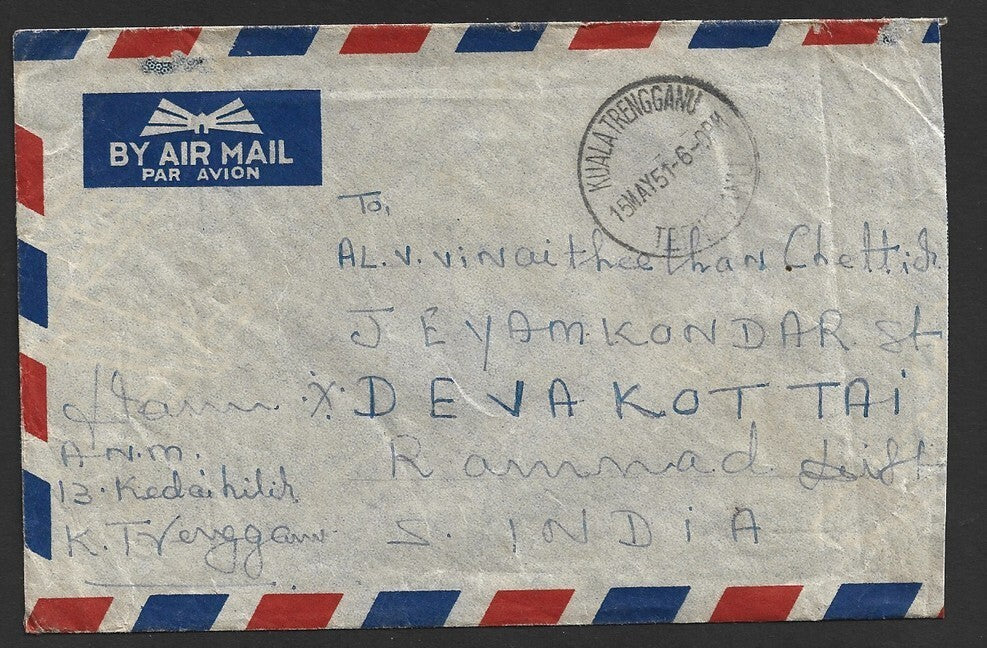 BY AIR MAIL
PAR AVION
KUALA TRENGGANU
15MAY51-6-
To,
AL.V. Vinaitheethan Chettiar
JEYAMKONDAR St
X DEVAKOTTAI
Ramnad Dist
S. INDIA
A.N.M.
13. Kedaihilir
K. Trengganu